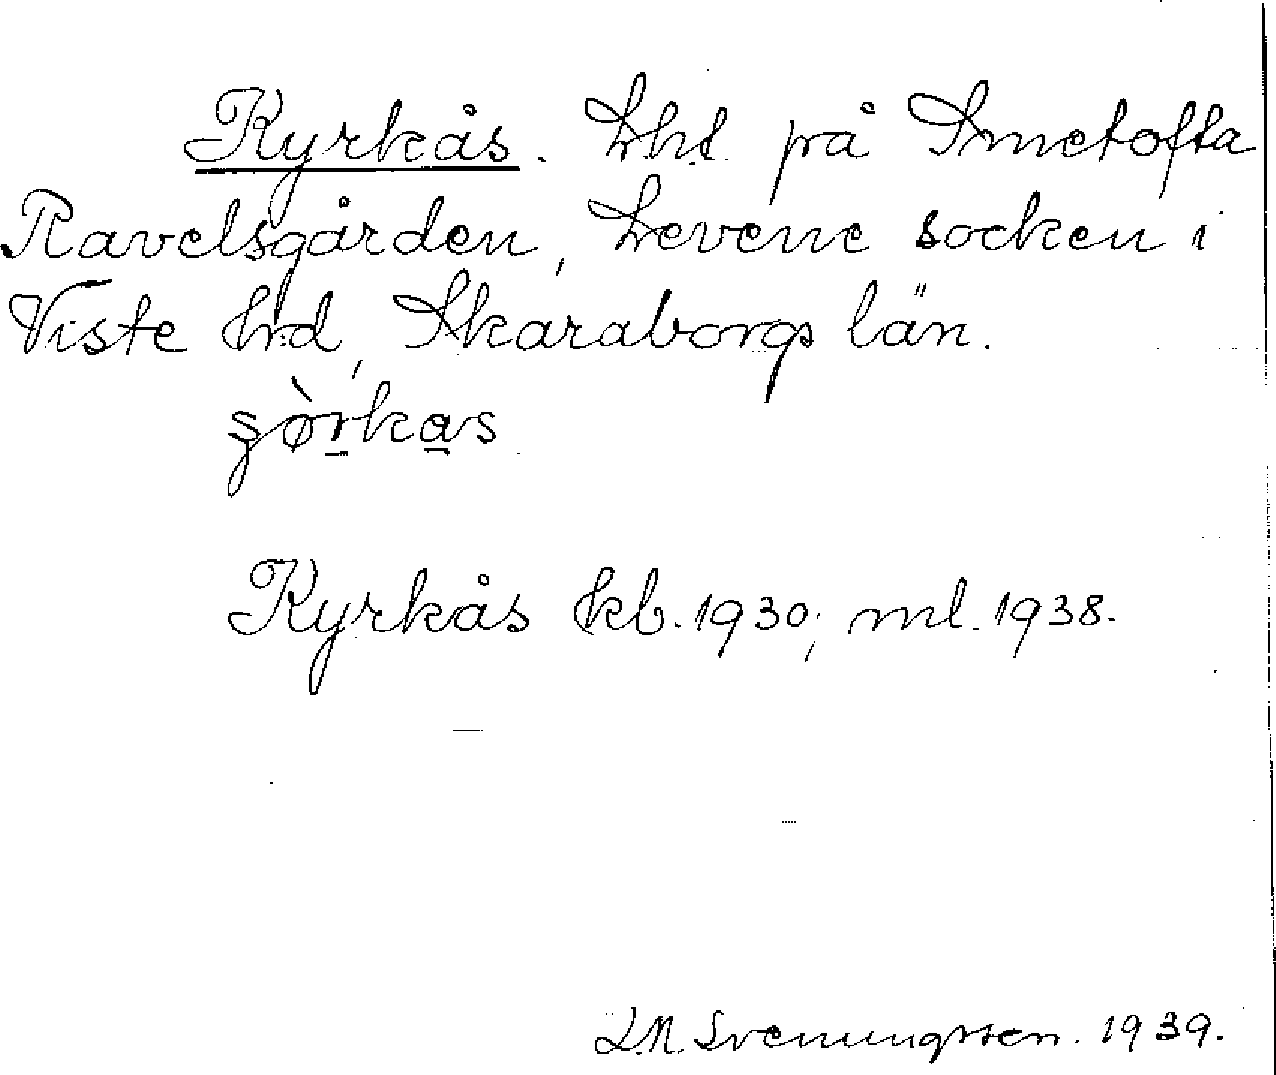 Kyrkås. Lht. på Smetofta
Ravelsgården, Levene socken i
Viste hd, Skaraborgs län.
Kyrkås kb. 1930; ml. 1938.
Svenungsson. 1939.